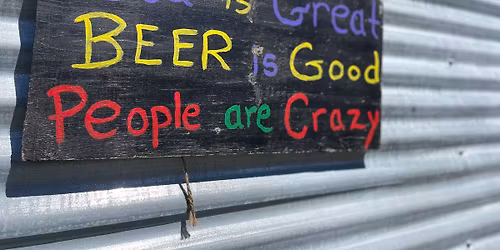 is Great
BEER is Good
People are Crazy